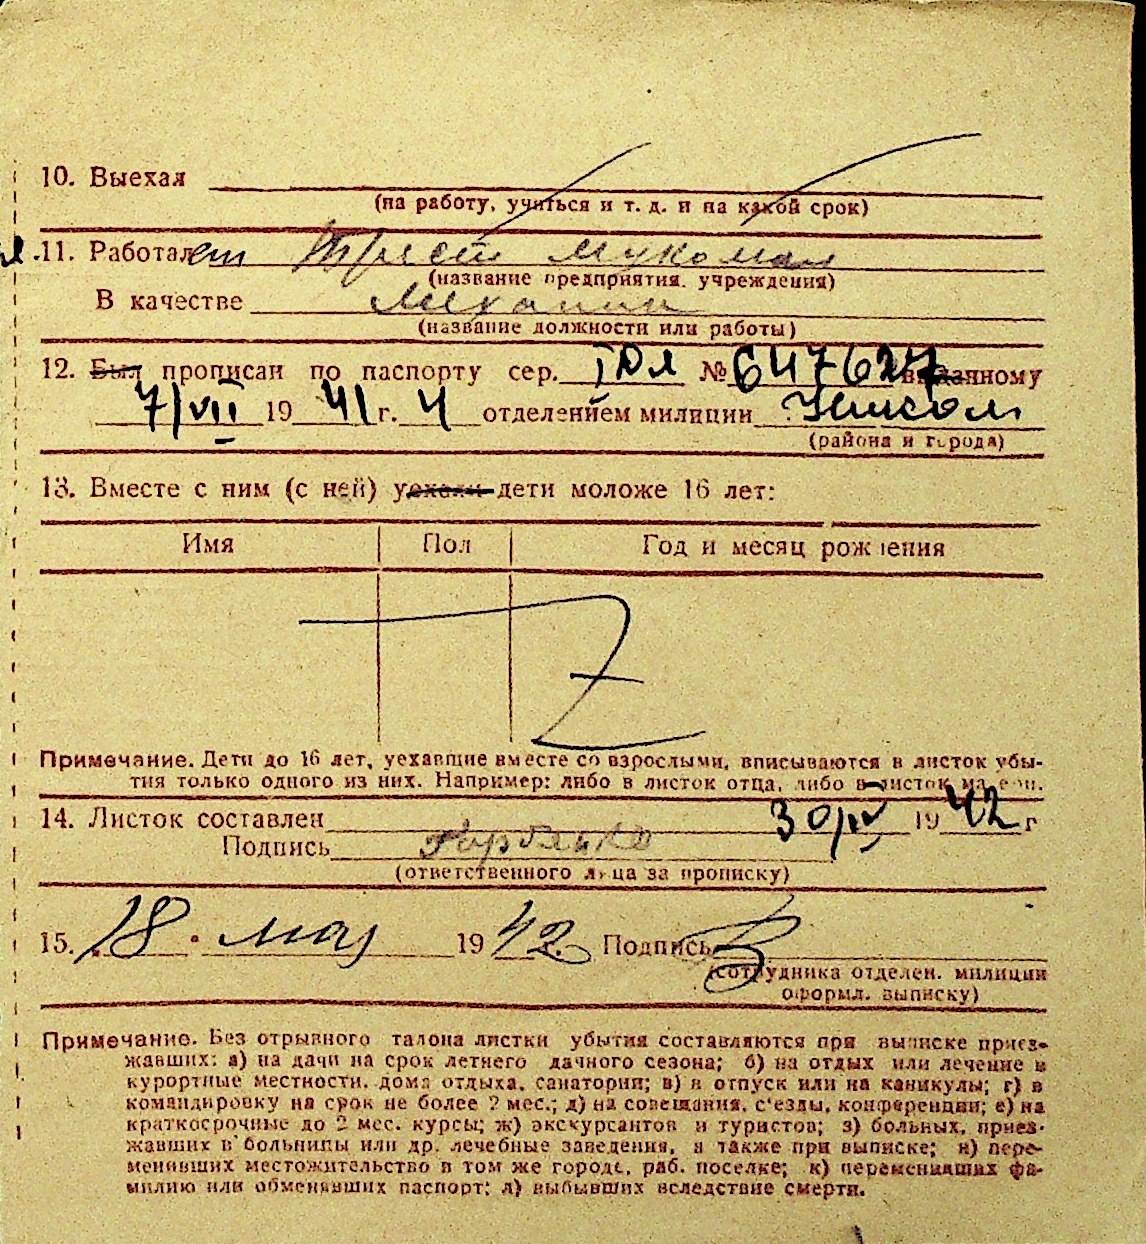 10. Выехал
(на работу, учиться и т. д. и на какой срок)
11. Работает Трест Мукомол
(название предприятия, учреждения)
В качестве Механик
(название должности или работы)
12. Был прописан по паспорту сер. № 647627 выданному
7/VII 1941 г. 4 отделением милиции
(района и города)
13. Вместе с ним (с ней) уехали дети моложе 16 лет:
Имя Пол Год и месяц рождения
Z
Примечание. Дети до 16 лет, уехавшие вместе со взрослыми, вписываются в листок убы-
тия только одного из них. Например: либо в листок отца, либо в листок матери.
14. Листок составлен 30/IV 1942 г
Подпись
(ответственного лица за прописку)
15. 18 • мая 1942. Подпись
(сотрудника отделен. милиции
оформл. выписку)
Примечание. Без отрывного талона листки убытия составляются при выписке приез-
жавших: а) на дачи на срок летнего дачного сезона; б) на отдых или лечение в
курортные местности, дома отдыха, санатории; в) в отпуск или на каникулы; г) в
командировку на срок не более 2 мес.; д) на совещания, с'езды, конференции; е) на
краткосрочные до 2 мес. курсы; ж) экскурсантов и туристов; з) больных, приез-
жавших в больницы или др. лечебные заведения, а также при выписке; и) пере-
менивших местожительство в том же городе, раб. поселке; к) переменивших фа-
милию или обменявших паспорт; л) выбывших вследствие смерти.